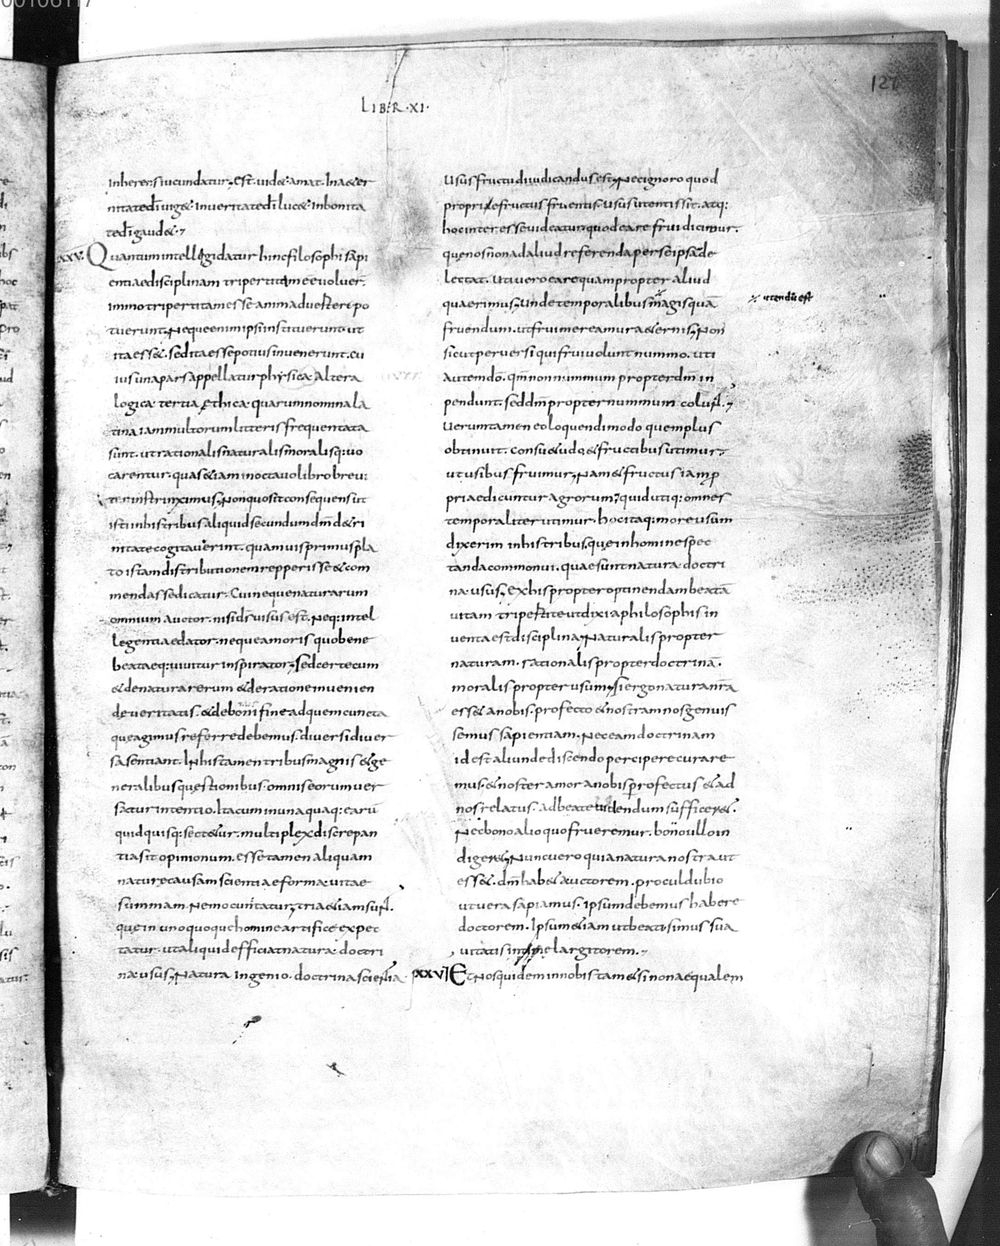 LIBER·XI·
127
inheret siucundatur. Est. uidet. amat. Inaeter
nitate dī uiget. Inueritate dī lucet. Inbonita
te dī gaudet.
XXV. Quantum intellegi datur hinc filosophi sapi
entiae disciplinam tripertitam eē uoluer
immo tripertitam esse animaduertere po
tuerunt. Neque enim ipsi instituerunt ut
ita esset. sed ita esse potius inuenerunt. cu
ius una pars appellatur physica. Altera
logica. tertia ethica. quarum nomina la
tina iam multorum litteris frequentata
sunt. ut rationalis naturalis moralisq: uo
carentur. quas etiam in octauo libro breui
ter instrinximus. Non quo sit consequens ut
isti in his tribus aliquid secundum dm̄ de tri
nitate cogitauerint. quamuis primus pla
to istam distributionem repperisse et com
mendasse dicatur. Cui neque naturarum
omnium auctor. nisi ds̄ uisus est. Neq: intel
legentiae dator. neque amoris quo bene
beataeq: uiuitur inspirator. Sed certe cum
et de natura rerum et de ratione inuenien
de ueritatis. et de boni fine ad quem cuncta
que agimus referre debemus. diuersi diuer
sa sentiant. In his tamen tribus magnis et ge
neralibus questionibus. omnis eorum uer
satur intentio. Ita cum in unaquaq: earū
quid quisq: sectetur. multiplex discrepan
tia sit opinionum. esse tamen aliquam
nature causam scientiae forma uitae
summam nemo cunctatur. tria etiam sunt.
que in unoquoque homine artifice expec
tatur. ut aliquid efficiat natura doctri
na usus. Natura ingenio. doctrina scientia
Usus fructu diiudicandus est. Nec ignoro quod
proprie fructus fruentis. usus utentis sit. atq:
hoc interesse uideatur. quod ea re frui dicimur.
que nos non ad aliud referenda per se ipsa de
lectat. Uti uero ea re quam propter aliud
quaerimus. Unde temporalibus magis quā
utendū est
fruendum. ut frui mereamur aeternis. Non
sicut peruersi qui frui uolunt nummo. uti
autem dō. qm̄ non nummum propter dm̄ in
pendunt. sed dm̄ propter nummum colunt.
Uerum tamen eo loquendi modo quem plus
obtinuit. consuetudo. et fructibus utimur.
ut usibus fruimur. Nam et fructus iam p
priae dicuntur agrorum. quid utiq: omnes
temporaliter utimur. hoc itaq: more usum
dixerim in his tribus. que in homine spec
tanda commonui. quae sunt natura doctri
na. usus. Ex his propter optinendam beatā
uitam tripertite ut dixi a philosophis in
uenta est disciplina. Naturalis propter
naturam. rationalis propter doctrinā.
moralis propter usum. Si ergo natura nr̄a
esset a nobis. profecto et nostram nos genuis
semus sapientiam. Nec eam doctrinam
id est aliunde discendo percipere curare
mus. et noster amor a nobis profectus et ad
nos relatus. ad beate uidendum sufficeret.
Nec bono alio quo frueremur. bono ullo in
digeret. Nunc uero quia natura nostra ut
esset. dm̄ habet auctorem. proculdubio
ut uera sapiamus. ipsum debemus habere
doctorem. Ipsum etiam ut beati simus sua
uitatis largitorem.
XXVI Et nos quidem in nobis tamet si non aequalem